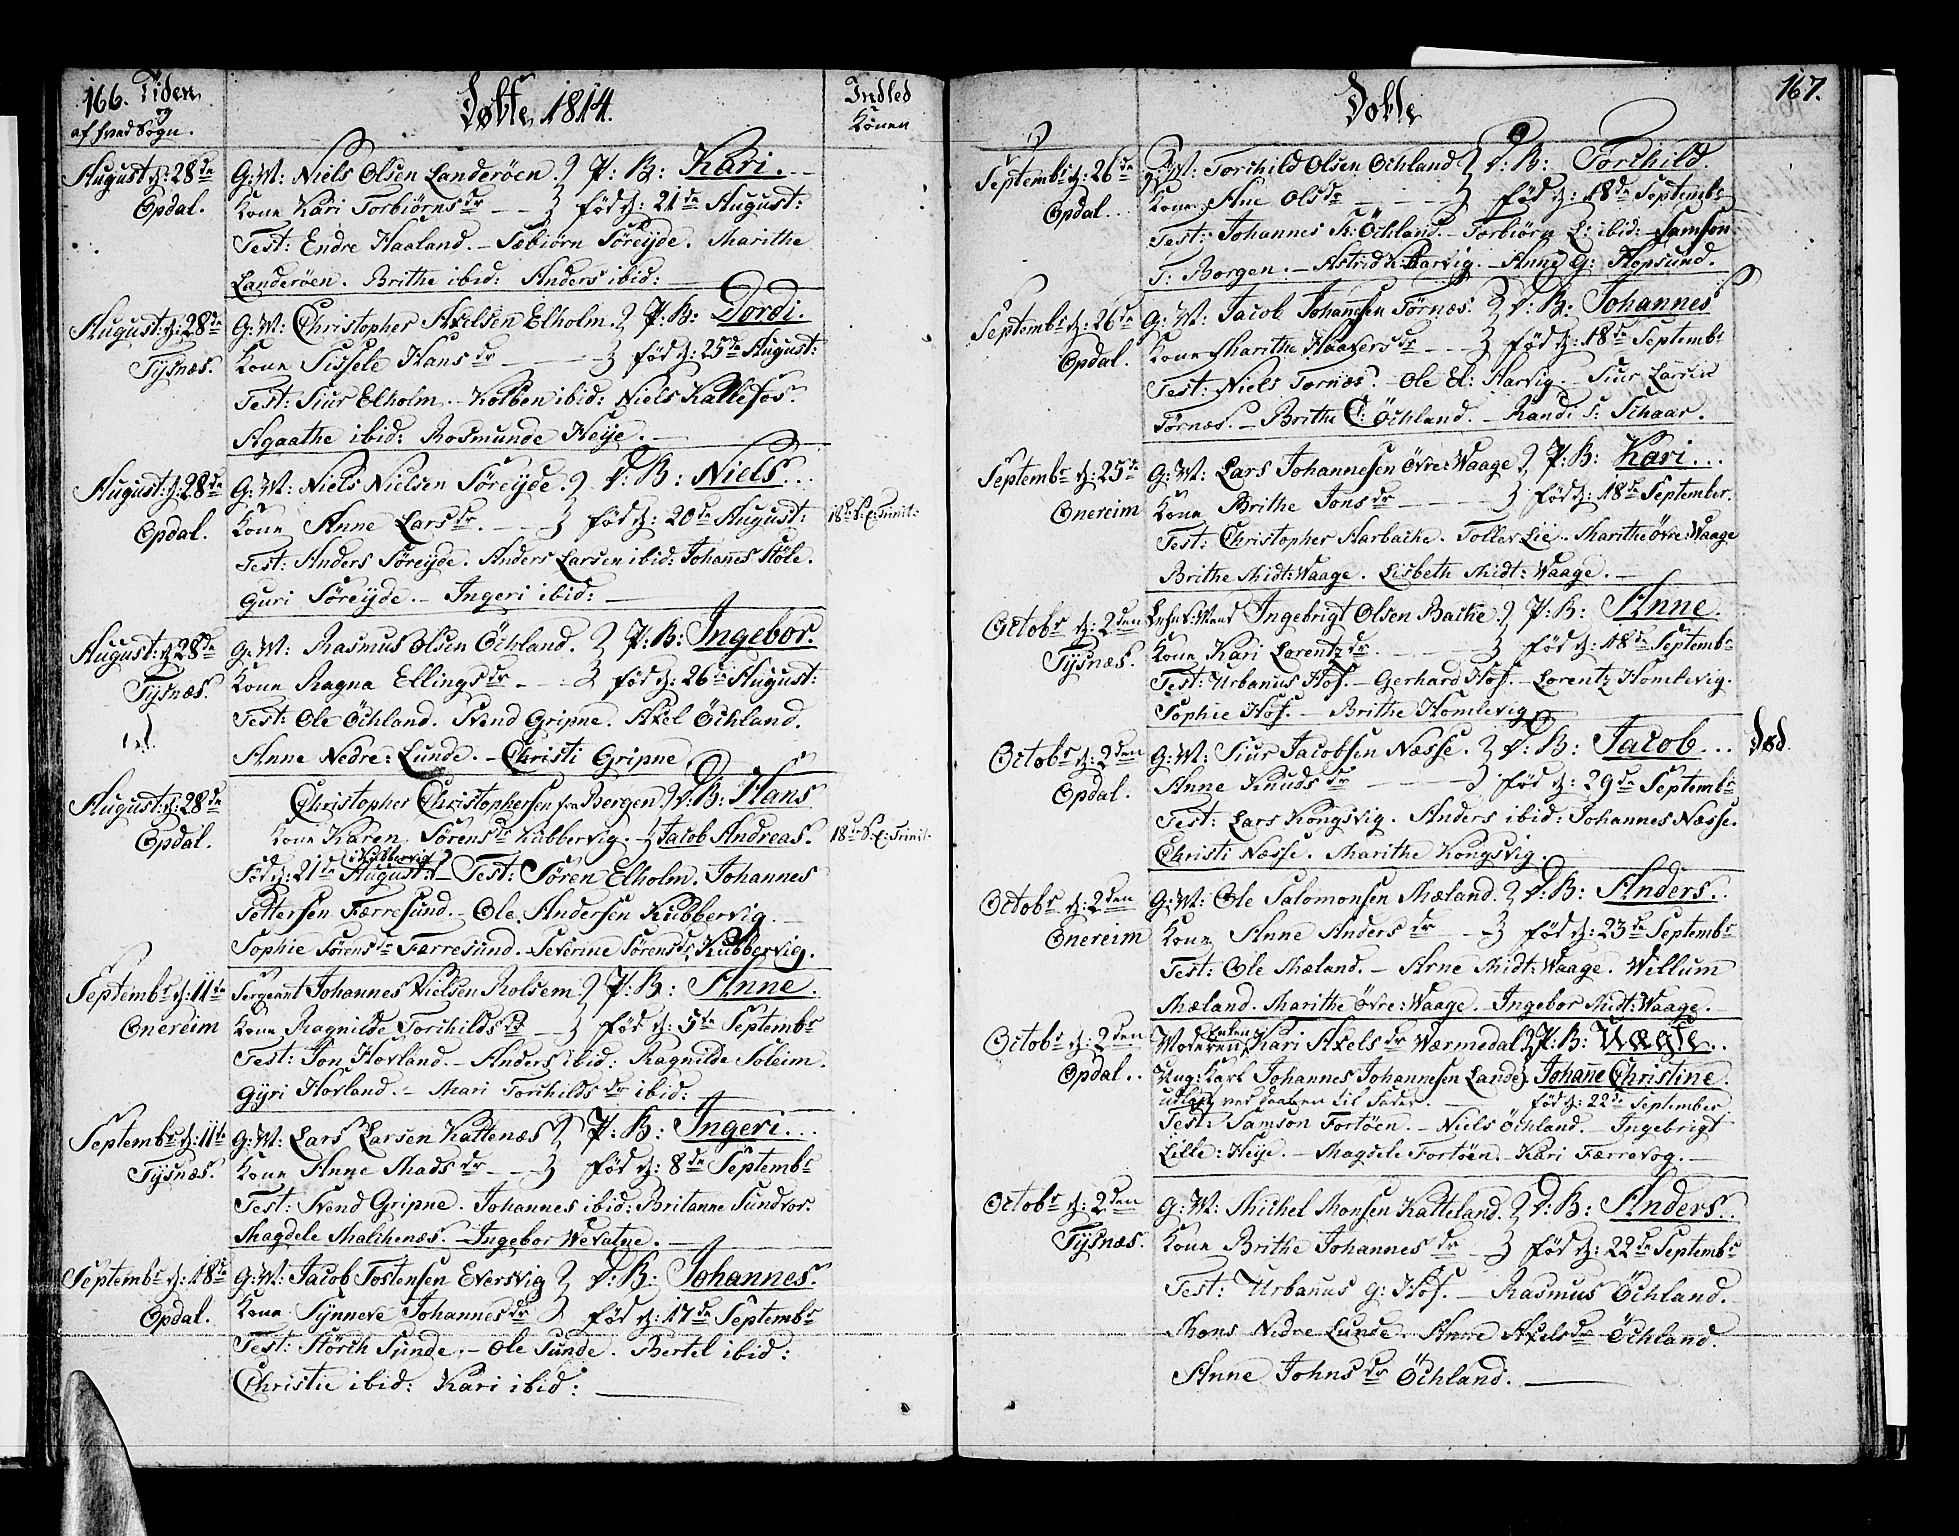 166. Tiden
og
af hvad Sogn.
Døbte 1814.
Indled
Konen
August: d: 28de G: M: Niels Olsen Landerøen. P: B: Kari.
Opdal. Kone Kari Torbiörns dr född: 21de August:
Test: Endre Haaland. Sæbiörn Söreijde. Marithe
Landeröen. Brithe ibid: Anders ibid:
August: d: 28de G: M: Christopher Axelsen Elholm. P: B: Dordi.
Tysnæs. Kone Sissele Hans dr född: 25de August:
Test: Siur Elholm. Kolben ibid: Niels Kallefos.
Agaathe ibid: Rosmunde Heije.
August: d: 28de G: M: Niels Nielsen Söreijde. D: B: Niels
Opdal. Kone Anne Lars dr. född: 20de August: 18de S: e: Trinit:
Test: Anders Söreijde. Anders Larsen ibid: Johans Höle.
Guri Söreijde. Ingeri ibid:
August: d: 28de G: M: Rasmus Olsen Öchland. P: B: Ingebor.
Tysnæs. Kone Ragna Ellings dr född: 26de August:
Test: Ole Öchland. Svend Gripne. Axel Öchland.
Anne Nedre: Lunde. Christi Gripne
August: d: 28de Christopher Christophersen fra Bergen. D: B: Hans
Opdal. Kone Karen Sörens dr Kubbervig. Jacob Andreas. 18de S: e: Trinit:
i Kubbervig
Född: 21de August: Test: Sören Elholm. Johannes
Pettersen Færresund. Ole Andersen Kubbervig.
Sophie Sörens dr Færresund. Severine Sörens dr Kubbervig.
Septembr d: 11te Sergeant Johannes Nielsen Rolsem P: B: Anne.
Onereim Kone Ragnilde Torchilds dr född: 5te Septembr
Test: Jon Hovland. Anders ibid: Ragnilde Soleim.
Gyri Hovland. Mari Torchilds dr ibid:
Septembr d: 11te G: M: Lars Larsen Kattenæs P: B: Ingeri.
Tysnæs. Kone Anne Mads dr född: 8de Septembr
Test: Svend Gripne. Johannes ibid: Britanne Sundvor.
Magdele Malchenæs. Ingebor Wevatne.
Septembr d: 18de G: M: Jacob Tostensen Eversvig D: B: Johannes.
Opdal. Kone Synneve Johannes dr född: 17de Septembr
Test: Störch Sunde. Ole Sunde. Bertel ibid:
Christie ibid: Kari ibid:
Døbte
167.
Septembr d: 26de G: M: Torchild Olsen Öchland D: B: Torchild.
Opdal. Kone Ane Ols dr född: 18de Septembr
Test: Johannes K: Öchland. Torbiörn L: ibid: Samson
T: Borgen. Astrid K: Harvig. Anne G: Hopsund.
Septembr d: 26de G: M: Jacob Johannsen Törnæs. D: B: Johannes
Opdal. Kone Marithe Haavers dr född: 18de Septembr
Test: Niels Tornæs. Ole El: Harvig. Siur Larsen
Törnæs. Brithe C: Öchland. Randi S: Schaar.
Septembr d: 25de G: M: Lars Johannesen Övre: Waage P: B: Kari
Onereim Kone Brithe Jons dr född: 18de September.
Test: Christopher Harbache. Tollev Lie. Marithe Övre: Waage
Brithe Midt: Waage. Lisbeth Midt: Waage.
Octobr d: 2den Ingebrigt Olsen Bache. P: B: Anne.
Tysnæs. Kone Kari Lorentz dr. född: 18de Septembr
Test: Urbanus Hof. Gerhard Hof. Lorentz Homlevig.
Sophie Hof. Brithe Homlevig.
Octobr d: 2den G: M: Siur Jacobsen Næsse. D: B: Jacob. Død.
Opdal. Anne Knuds dr född: 29de Septembr
Test: Lars Kongsvig. Anders ibid: Johannes Næsse.
Christi Næsse. Marithe Kongsvig.
Octobr d: 2den G: M: Ole Salomonsen Mæland. D: B: Anders.
Onereim Kone Anne Anders dr född: 23de Septembr
Test: Ole Mæland. Arne Midt: Waage. Willum
Mæland. Marithe Övre: Waage. Ingebor Midt: Waage.
Octobr d: 2den Moderen Enken Kari Axels dr Wærmedal P: B: Uægte
Opdal. Ung: Karl Johannes Johannesen Lande. Johane Christine.
udlagt ved Daaben til Fader. född: 22de September
Test: Samson Fortöen. Niels Öchland. Ingebrigt
Lille: Heije. Magdele Fortöen. Kari Færrevog.
Octobr d: 2den G: M: Michel Monsen Katteland. D: B: Anders.
Tysnæs. Kone Brithe Johannes dr född: 22de Septembr
Test: Urbanus G: Hof. Rasmus Öchland.
Mons Nedre Lunde. Anne Axels dr Öchland.
Anne Johns dr Öchland.